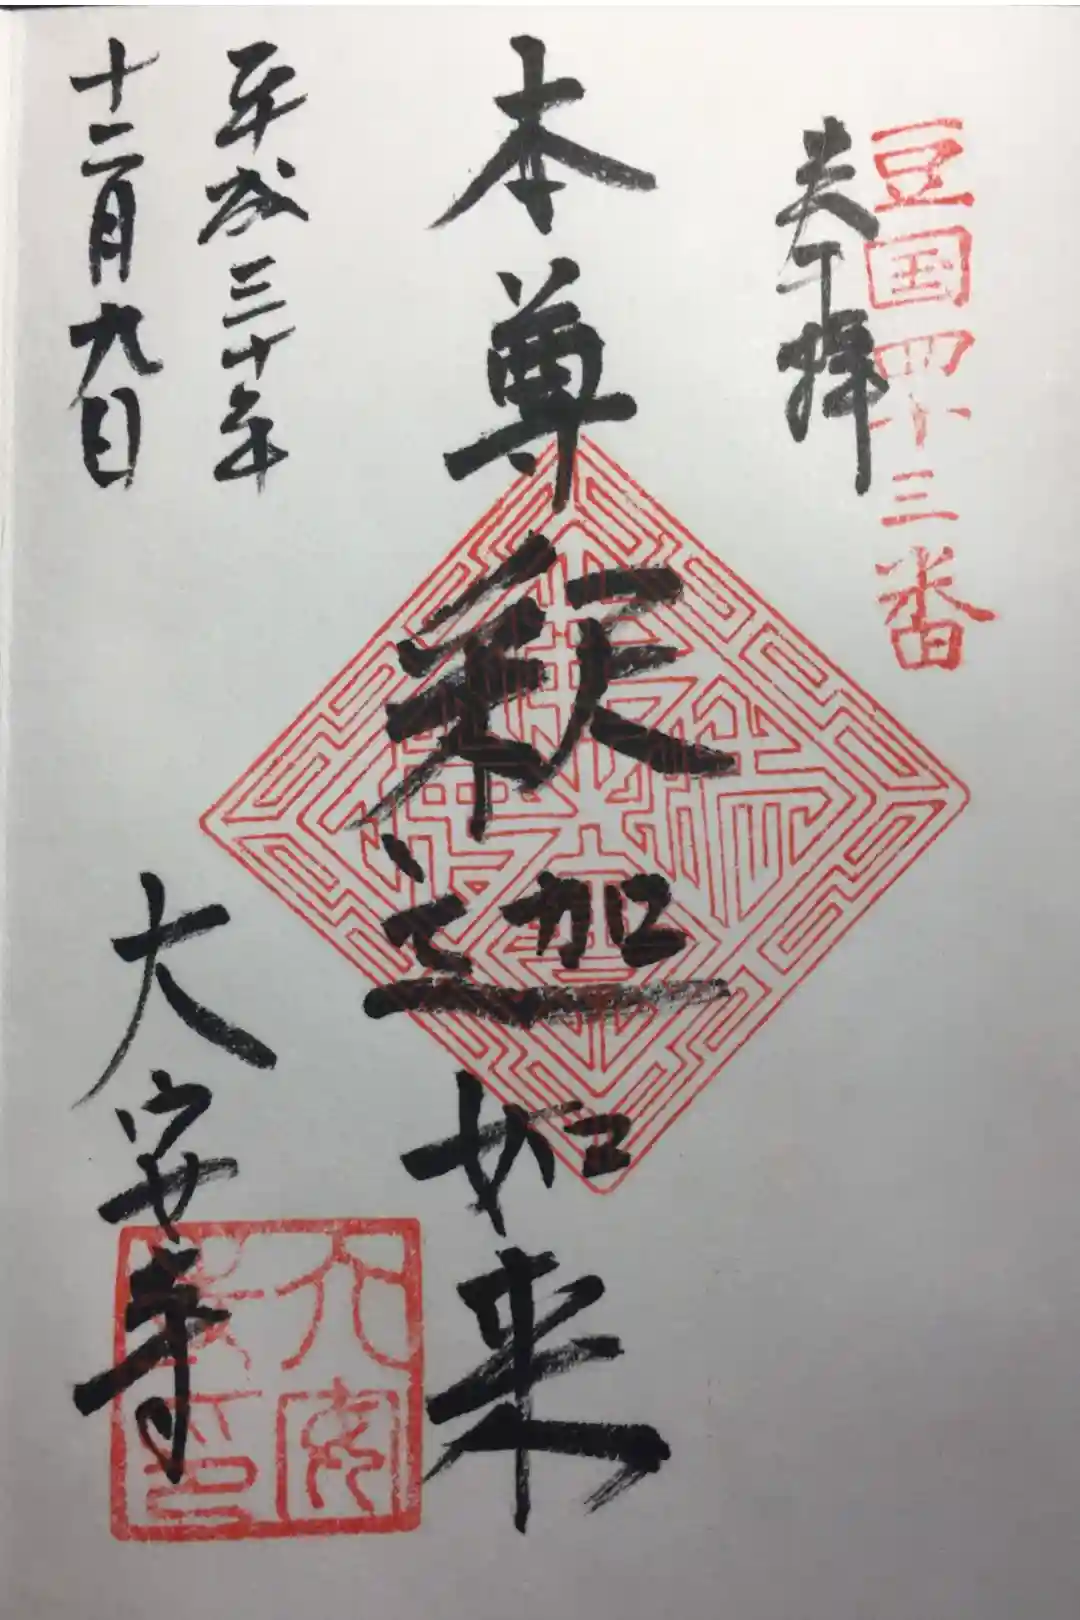 豆国四十三番
奉拝
本尊釈迦如来
平成三十年
十二月九日
大安寺
大安寺印